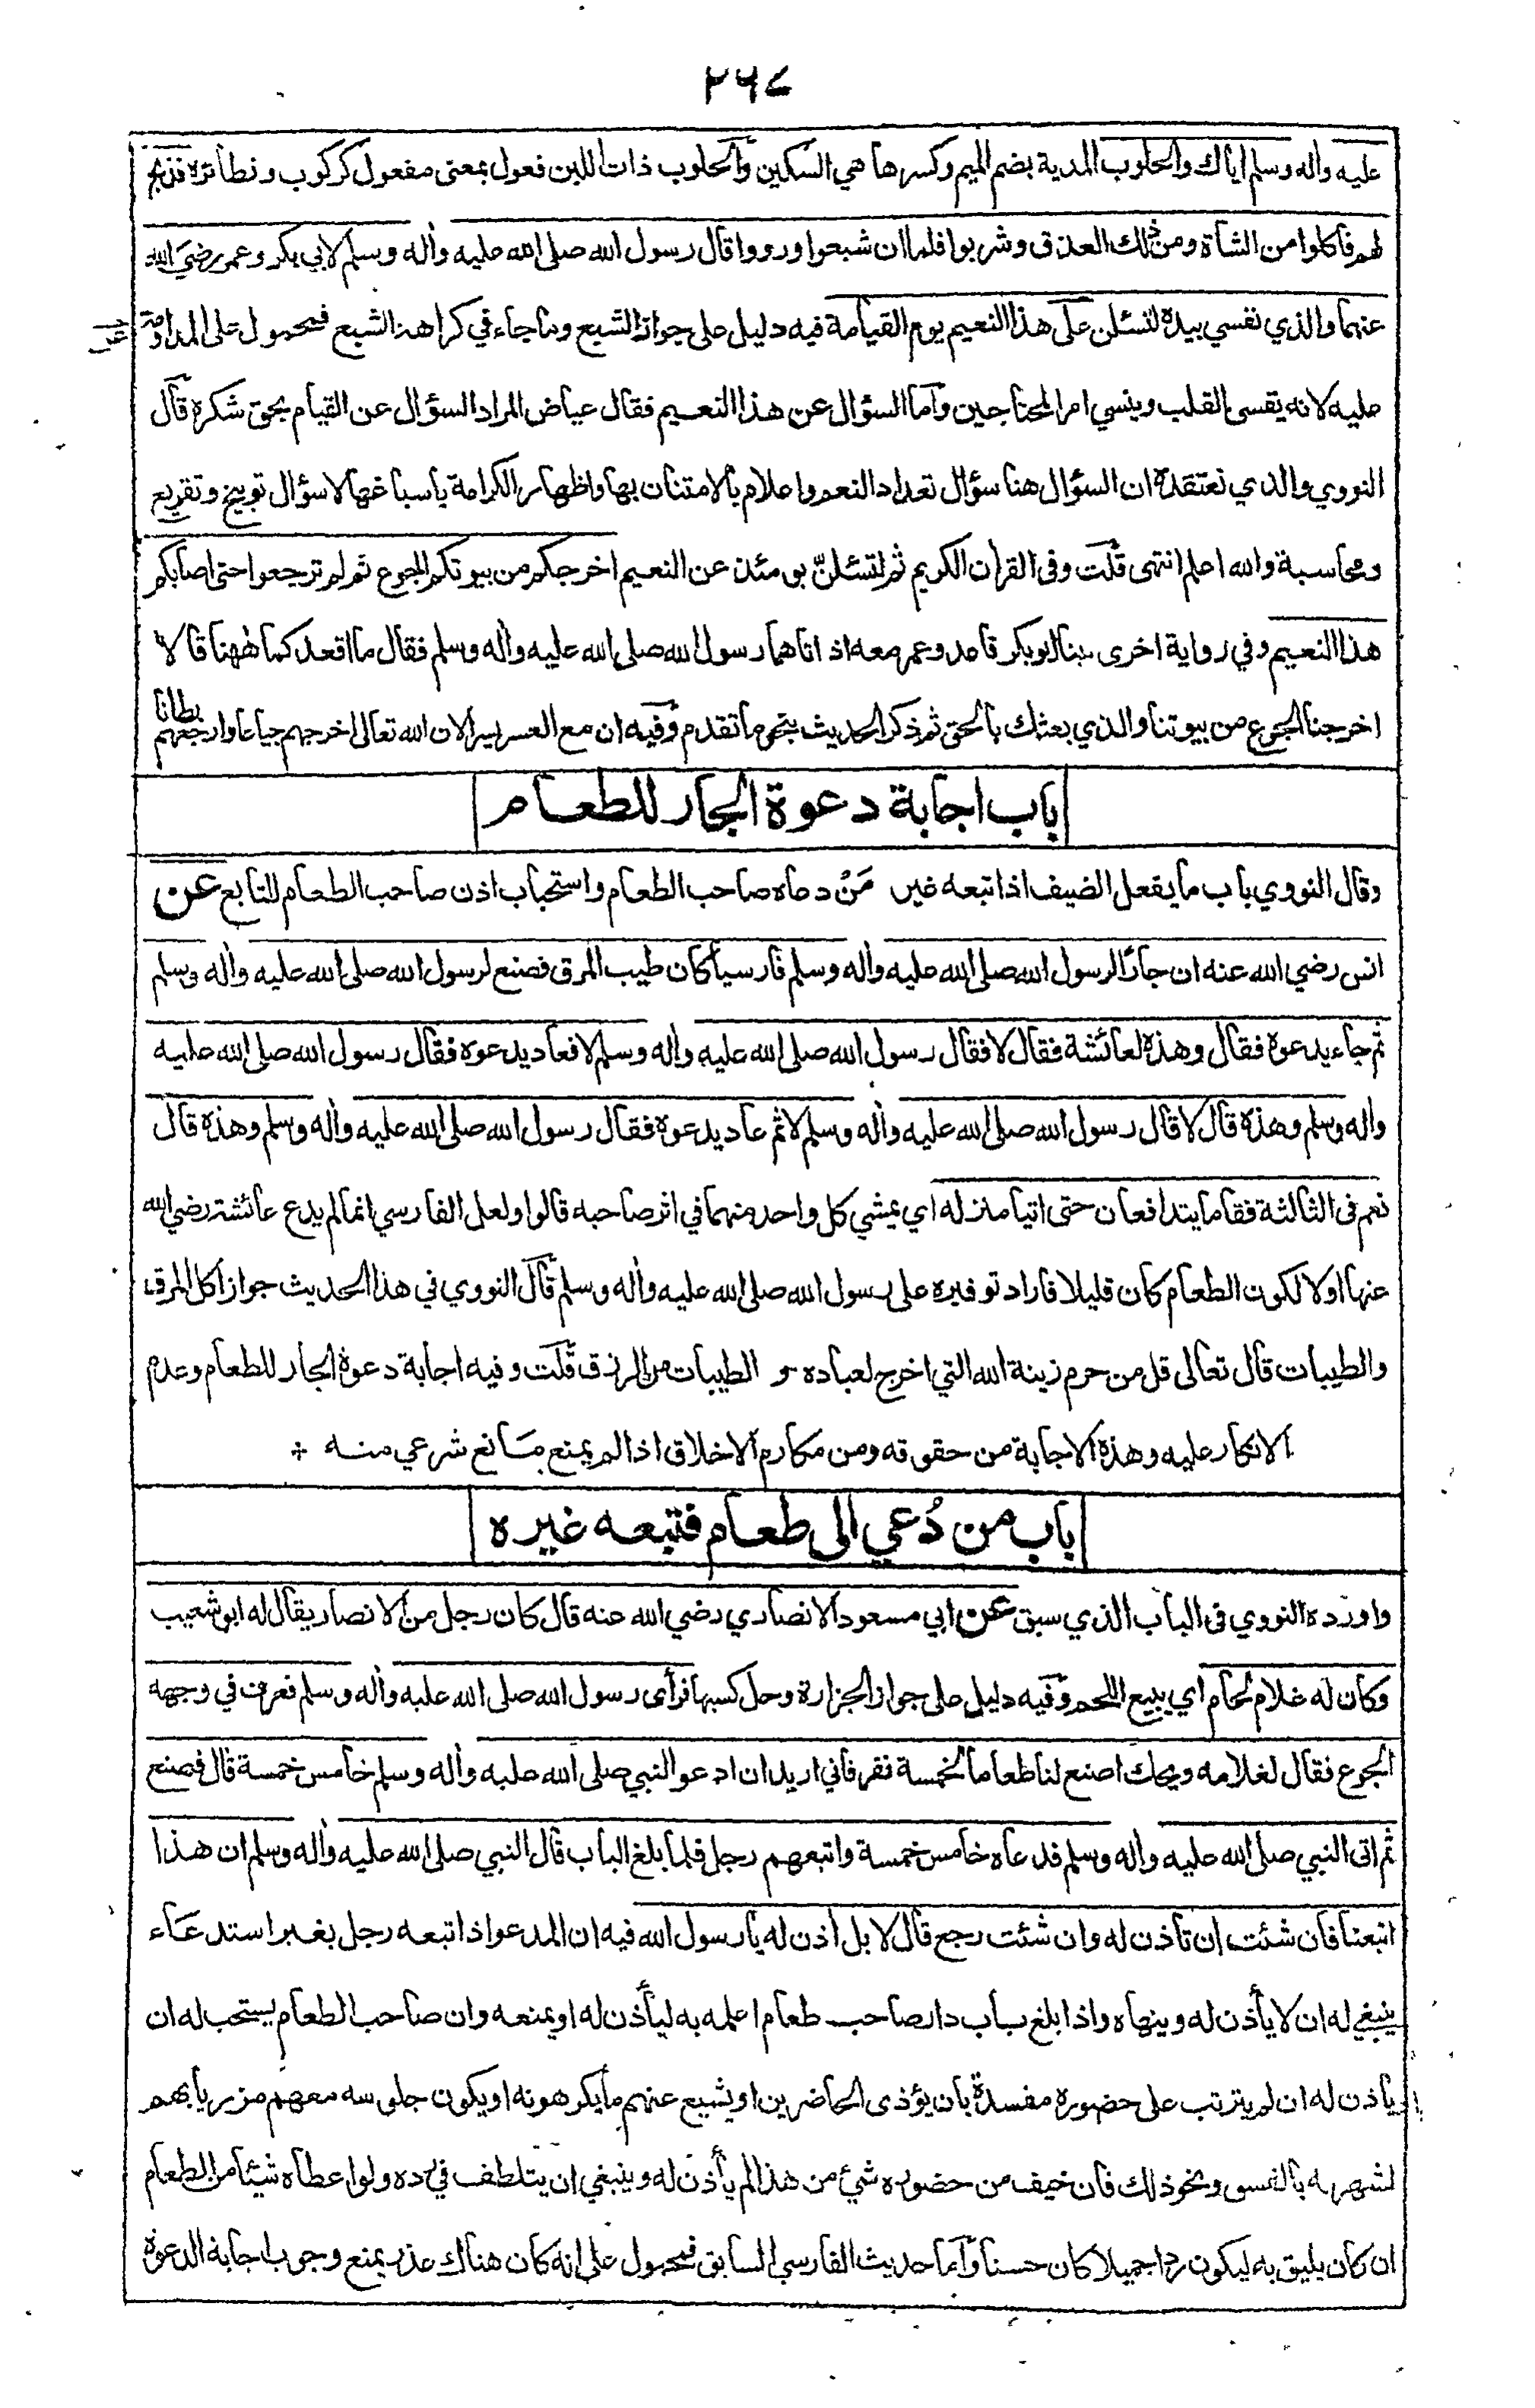 ۲۶۷
عليه واله وسلم اياك والحلوب المدية بضم الميم وكسرها هي السكين والحلوب ذات اللبن فعول بمعنى مفعول كركوب ونظائره فذبح
لهم فاكلوا من الشاة ومن ذلك العذق وشربوا فلما ان شبعوا ورووا قال رسول الله صلى الله عليه واله وسلم لابي بكر وعمر رضي الله
عنهما والذي نفسي بيده لتسئلن عن هذا النعيم يوم القيامة فيه دليل على جواز الشبع وما جاء في كراهة الشبع فمحمول على المداومة
عليه لانه يقسي القلب وينسي امر المحتاجين وآما السؤال عن هذا النعيم فقال عياض المراد السؤال عن القيام بحق شكره قال
النووي والذي نعتقده ان السؤال هنا سؤال تعداد النعم واعلام بالامتنان بها واظهار الكرامة باسباغها لا سؤال توبيخ وتقريع
ومحاسبة والله اعلم انتهى قلت وفي القران الكريم ثم لتسئلنّ يومئذ عن النعيم اخرجكم من بيوتكم الجوع ثم لم ترجعوا حتى اصابكم
هذا النعيم وفي رواية اخرى بينا ابوبكر قاعد وعمر معه اذ اتاهما رسول الله صلى الله عليه واله وسلم فقال ما اقعدكما ههنا قالا
اخرجنا الجوع من بيوتنا والذي بعثك بالحق ثم ذكر الحديث بنحو ما تقدم وفيه ان مع العسر يسرا لان الله تعالى اخرجهم جياعا وارجعهم بطانا
باب اجابة دعوة الجار للطعام
وقال النووي باب ما يفعل الضيف اذا تبعه غير مَنْ دعاه صاحب الطعام واستحباب اذن صاحب الطعام للتابع عن
انس رضي الله عنه ان جارًا لرسول الله صلى الله عليه واله وسلم فارسيا كان طيب المرق فصنع لرسول الله صلى الله عليه واله وسلم
ثم جاء يدعوه فقال وهذه لعائشة فقال لا فقال رسول الله صلى الله عليه واله وسلم لا فعاد يدعوه فقال رسول الله صلى الله عليه
واله وسلم وهذه قال لا قال رسول الله صلى الله عليه واله وسلم لا ثم عاد يدعوه فقال رسول الله صلى الله عليه واله وسلم وهذه قال
نعم في الثالثة فقاما يتدافعان حتى اتيا منزله اي يمشي كل واحد منهما في اثر صاحبه قالوا ولعل الفارسي انما لم يدع عائشة رضي الله
عنها اولا لكون الطعام كان قليلا فاراد توفيره على رسول الله صلى الله عليه واله وسلم قال النووي في هذا الحديث جواز اكل المرق
والطيبات قال تعالى قل من حرم زينة الله التي اخرج لعباده و الطيبات من الرزق قلت وفيه اجابة دعوة الجار للطعام وعدم
الانكار عليه وهذه الاجابة من حقوقه ومن مكارم الاخلاق اذا لم يمنع مانع شرعي منه
باب من دُعي الى طعام فتبعه غيره
واورده النووي في الباب الذي سبق عن ابي مسعود الانصاري رضي الله عنه قال كان رجل من الانصار يقال له ابو شعيب
وكان له غلام لحام اي يبيع اللحم وفيه دليل على جواز الجزارة وحل كسبها فرأى رسول الله صلى الله عليه واله وسلم فعرف في وجهه
الجوع فقال لغلامه ويحك اصنع لنا طعاما لخمسة نفر فاني اريد ان ادعو النبي صلى الله عليه واله وسلم خامس خمسة قال فصنع
ثم اتى النبي صلى الله عليه واله وسلم فدعاه خامس خمسة واتبعهم رجل فلما بلغ الباب قال النبي صلى الله عليه واله وسلم ان هذا
اتبعنا فان شئت ان تأذن له وان شئت رجع قال لا بل آذن له يا رسول الله فيه ان المدعو اذا تبعه رجل بغير استدعاء
ينبغي له ان لا يأذن له وينهاه واذا بلغ باب دار صاحب طعام اعلمه به ليأذن له او يمنعه وان صاحب الطعام يستحب له ان
يأذن له ان لم يترتب على حضوره مفسدة بان يؤذى الحاضرين او يشيع عنهم ما يكرهونه او يكون جلوسه معهم مزريا بهم
لشهرته بالفسق ونحو ذلك فان خيف من حضوره شيء من هذا لم يأذن له وينبغي ان يتلطف في رده ولو اعطاه شيئا من الطعام
ان كان يليق به ليكون ردا جميلا كان حسنا وآما حديث الفارسي السابق فمحمول على انه كان هناك عذر يمنع وجوب اجابة الدعوة